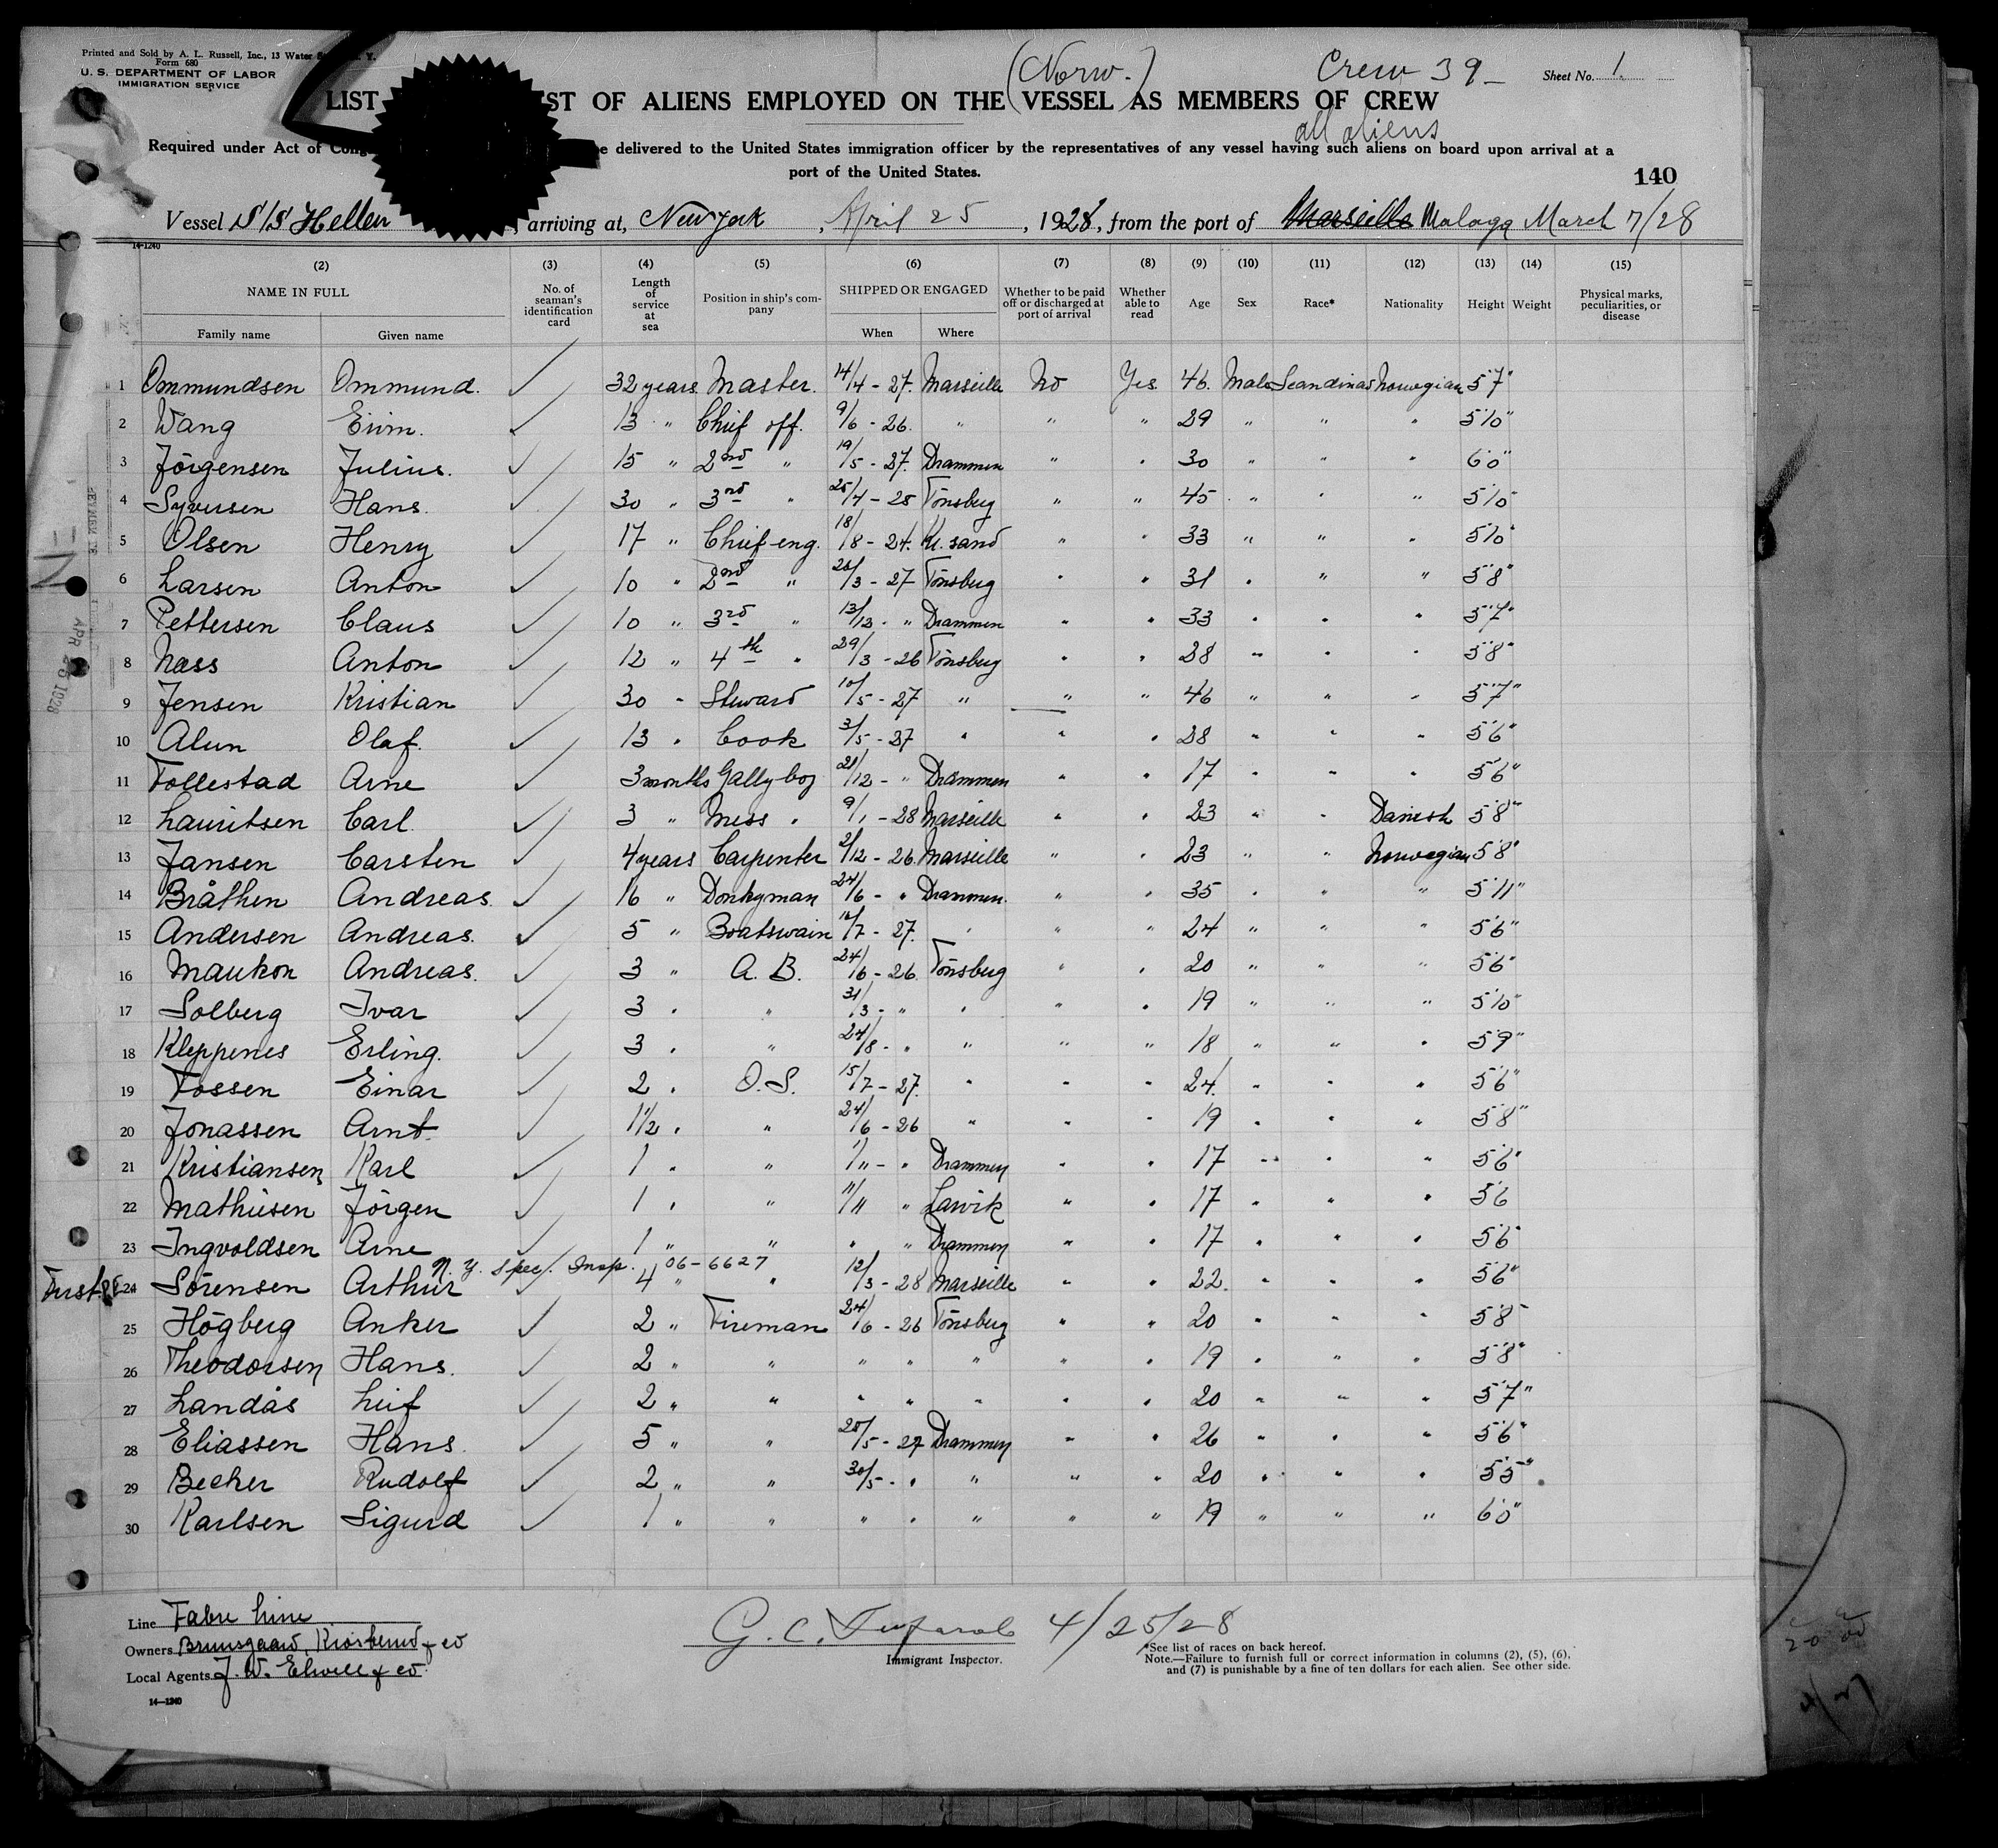 Printed and Sold by A. L. Russell, Inc., 13 Water Y.
Form 680
U. S. DEPARTMENT OF LABOR
IMMIGRATION SERVICE
(Norw.)
Crew 39 –
Sheet No. 1.
LIST ST OF ALIENS EMPLOYED ON THE VESSEL AS MEMBERS OF CREW
all aliens
Required under Act of Cong e delivered to the United States immigration officer by the representatives of any vessel having such aliens on board upon arrival at a
port of the United States.
140
Vessel S/S Hellen , arriving at, New York , April 25 , 1928, from the port of Marseille Malaga March 7/28
14-1240
(2) (3) (4) (5) (6) (7) (8) (9) (10) (11) (12) (13) (14) (15)
NAME IN FULL No. of seaman's identification card Length of service at sea Position in ship's company SHIPPED OR ENGAGED Whether to be paid off or discharged at port of arrival Whether able to read Age Sex Race* Nationality Height Weight Physical marks, peculiarities, or disease
Family name Given name When Where
1 Ommundsen Ommund. ✓ 32 years Master. 14/4 - 27. Marseille No Yes 46. Male Scandinav Norwegian 5'7"
2 Wang ✓ 13 " Chief off. 9/6 - 26. " " " 29 " " " 5'10"
3 Jörgensen Julius. ✓ 15 " 2nd " 19/5 - 27. Drammen " " 30 " " " 6'0"
4 Syversen Hans. ✓ 30 " 3rd " 25/4 - 25 Tönsberg " " 45 " " " 5'10"
5 Olsen Henry ✓ 17 " Chief eng. 18/8 - 24. Kr. sand " " 33 " " " 5'10"
6 Larsen Anton ✓ 10 " 2nd " 28/3 - 27 Tönsberg " " 31 " " " 5'8"
7 Pettersen Claus ✓ 10 " 3rd " 13/12 - " Drammen " " 33 " " " 5'7"
8 Næss Anton ✓ 12 " 4th " 29/3 - 26 Tönsberg " " 28 " " " 5'8"
9 Jensen Kristian ✓ 30 " Steward 10/5 - 27 " " " 46 " " " 5'7"
10 Olaf. ✓ 13 " Cook 3/5 - 27 " " " 28 " " " 5'6"
11 Tollestad Arne ✓ 3 months Gally boy 21/12 - " Drammen " " 17 " " " 5'6"
12 Lauritsen Carl. ✓ 3 " Mess " 9/1 - 28 Marseille " " 23 " " Danish 5'8"
13 Jansen Carsten ✓ 4 years Carpenter 2/12 - 26. Marseille " " 23 " " Norwegian 5'8"
14 Bråthen Andreas. ✓ 16 " Donkyman 24/6 - " Drammen. " " 35 " " " 5'11"
15 Andersen Andreas. ✓ 5 " Boatswain 16/7 - 27. " " " 24 " " " 5'6"
16 Maukon Andreas. ✓ 3 " A. B. 24/6 - 26. Tönsberg " " 20 " " " 5'6"
17 Solberg Ivar ✓ 3 " " 31/3 - " " " " 19 " " " 5'10"
18 Kleppenes Erling. ✓ 3 " " 24/8 - " " " " 18 " " " 5'9"
19 Fossen Einar ✓ 2 " O. S. 15/7 - 27. " " " 24. " " " 5'6"
20 Jonassen Arnt ✓ 1½ " " 24/6 - 26 " " " 19 " " " 5'8"
21 Kristiansen Karl ✓ 1 " " 1/11 - " Drammen " " 17 " " " 5'6"
22 Mathiesen Jörgen ✓ 1 " " 11/11 " Larvik " " 17 " " " 5'6
23 Ingvoldsen Arne ✓ 1 " " " " Drammen " " 17 " " " 5'6"
N. Y. Spec. Insp. 06-6627
First 24 Sörensen Arthur ✓ 4 " " 12/3 - 28 Marseille " " 22. " " " 5'6"
25 Högberg Anker ✓ 2 " Fireman 24/6 - 26 Tönsberg " " 20 " " " 5'8"
26 Theodorsen Hans. ✓ 2 " " " " " " " 19 " " " 5'8"
27 Landås Leif ✓ 2 " " " " " " " 20 " " " 5'7"
28 Eliassen Hans. ✓ 5 " " 28/5 - 27 Drammen " " 26 " " " 5'6"
29 Becker Rudolf ✓ 2 " " 30/5 - " " " " 20 " " " 5'5"
30 Karlsen Sigurd ✓ 1 " " " " " " " 19 " " " 6'0"
APR 25 1928
Line Fabre Line
Owners Bruusgaard, Kiosterud & co
Local Agents J. W. Elwell & co.
14-1240
G. C. 4/25/28
Immigrant Inspector.
*See list of races on back hereof.
Note.—Failure to furnish full or correct information in columns (2), (5), (6),
and (7) is punishable by a fine of ten dollars for each alien. See other side.